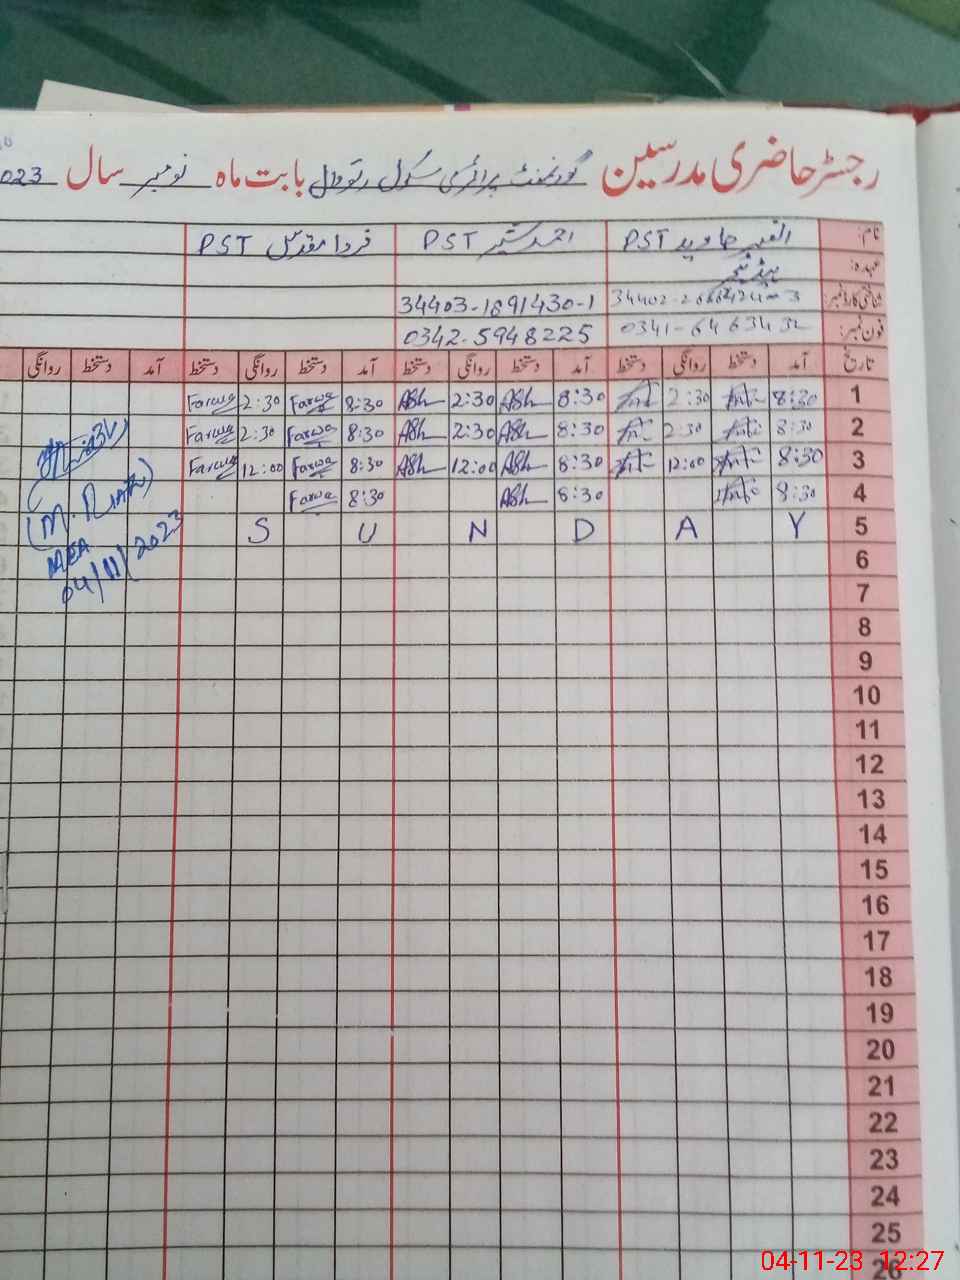 رجسٹر حاضری مدرسین گورنمنٹ پرائمری سکول رتووال بابت ماہ نومبر سال 2023
نام: جاوید PST احمد شبیر PST فردا مقدس PST
عہدہ: ہیڈ ٹیچر
شناختی کارڈ نمبر: 34403-1891430-1
فون نمبر: 0341-6463432 0342-5948225
تاریخ آمد دستخط روانگی دستخط آمد دستخط روانگی دستخط آمد دستخط روانگی دستخط آمد دستخط روانگی
1 8:30 2:30 8:30 ASh 2:30 ASh 8:30 Farwa 2:30 Farwa
2 8:30 2:30 8:30 ASh 2:30 ASh 8:30 Farwa 2:30 Farwa
3 8:30 12:00 8:30 ASh 12:00 ASh 8:30 Farwa 12:00 Farwa
4 8:30 8:30 ASh 8:30 Farwa
S U N D A Y 5
6
7
8
9
10
11
12
13
14
15
16
17
18
19
20
21
22
23
24
25
26
(M. Riaz)
MEA
04/11/2023
04-11-23 12:27